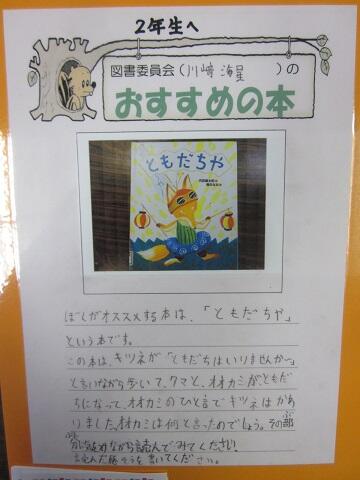 2年生へ
図書委員会(川崎 海星 )の
おすすめの本
ともだちや
ぼくがオススメする本は、「ともだちや」
という本です。
この本は、キツネが「ともだちはいりませんか〜」
と言いながら歩いて、クマと、オオカミがともだ
ちになって、オオカミのひと言でキツネはかわ
りました。オオカミは何と言ったのでしょう。その部
分に注目しながら読んでみてください。
読んだ感そうを書いてください。